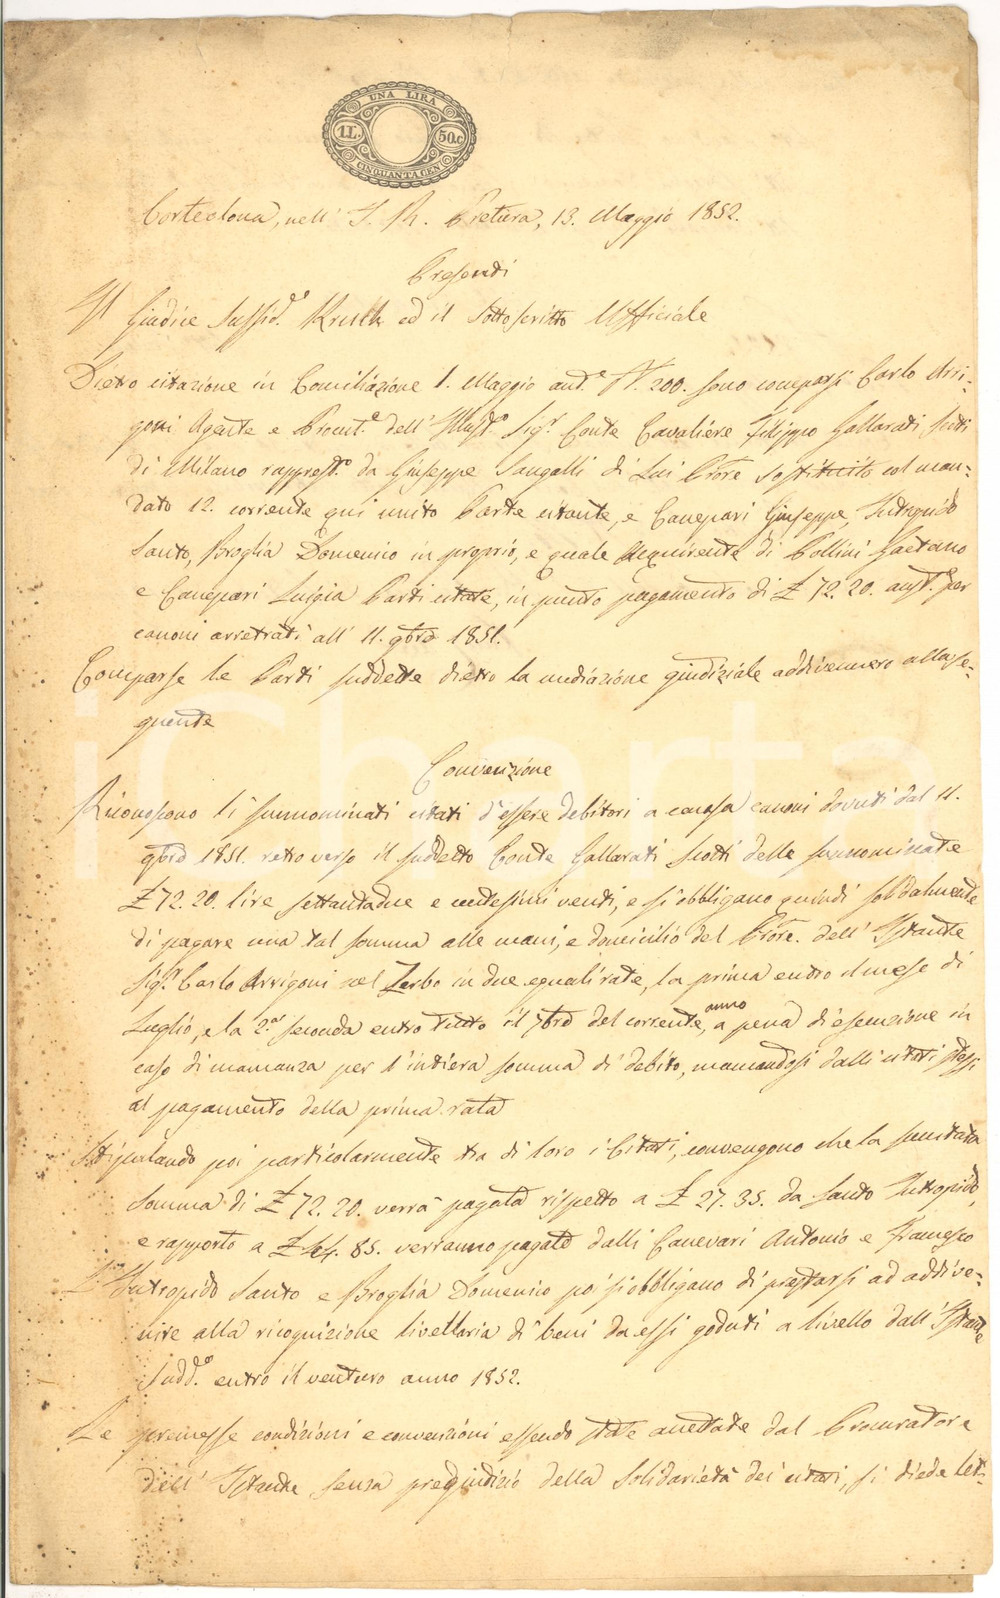 UNA LIRA
1L. 50.c
CINQUANTA CEN
Corteolona, nell' I. R. Pretura, 13. Maggio 1852.
Presenti
Il Giudice Sussid.e ed il Sottoscritto Ufficiale
Dietro citazione in Conciliazione 1. Maggio and.e N. 200. sono comparsi Carlo Arri-
goni Agente e Procut.e dell' Illust.o Sig.r Conte Cavaliere Filippo Gallarati Scotti
di Milano rapprest.o da Giuseppe Sangalli di Lui Prore sostituito col man-
dato 12. corrente qui unito Parte citante, e Canepari Giuseppe, Intropido
Santo, Broglia Domenico in proprio, e quale Acquirente di Pollini Gaetano
e Canepari Luigia Parti citate, in punto pagamento di £ 72. 20. aust.e per
canoni arretrati all' 11. 9bre 1851.
Comparse le Parti suddette dietro la mediazione giudiziale addivennero alla se-
guente
Convenzione
Riconoscono li sunnominati citati d'essere debitori a causa canoni dovuti dal 11.
9bre 1851. retro verso il suddetto Conte Gallarati Scotti delle sunnominate
£ 72. 20. lire settantadue e centesimi venti, e si obbligano quindi solidalmente
di pagare una tal somma alle mani, e domicilio del Prore. dell' Istante
Sig.r Carlo Arrigoni nel Zerbo in due eguali rate, la prima entro il mese di
Luglio, e la 2.a seconda entro tutto il 7bre del corrente, anno a pena di esecuzione in
caso di mancanza per l'intiera somma di debito, mancandosi dalli citati stessi
al pagamento della prima rata
Stipulando poi particolarmente tra di loro i Citati, convengono che la suncitata
somma di £ 72. 20. verrà pagata rispetto a £ 27. 35. da Santo Intropido,
e rapporto a £ 44. 85. verranno pagate dalli Canevari Antonio e Francesco
Intropido Santo e Broglia Domenico poi si obbligano di prestarsi ad addive-
nire alla ricognizione livellaria di beni da essi goduti a livello dall' Istante
Sudd.o entro il venturo anno 1852.
Le premesse condizioni e convenzioni essendo state accettate dal Procuratore
dell' Istante senza pregiudizio della Solidarietà dei citati, si diede let-
iCharta